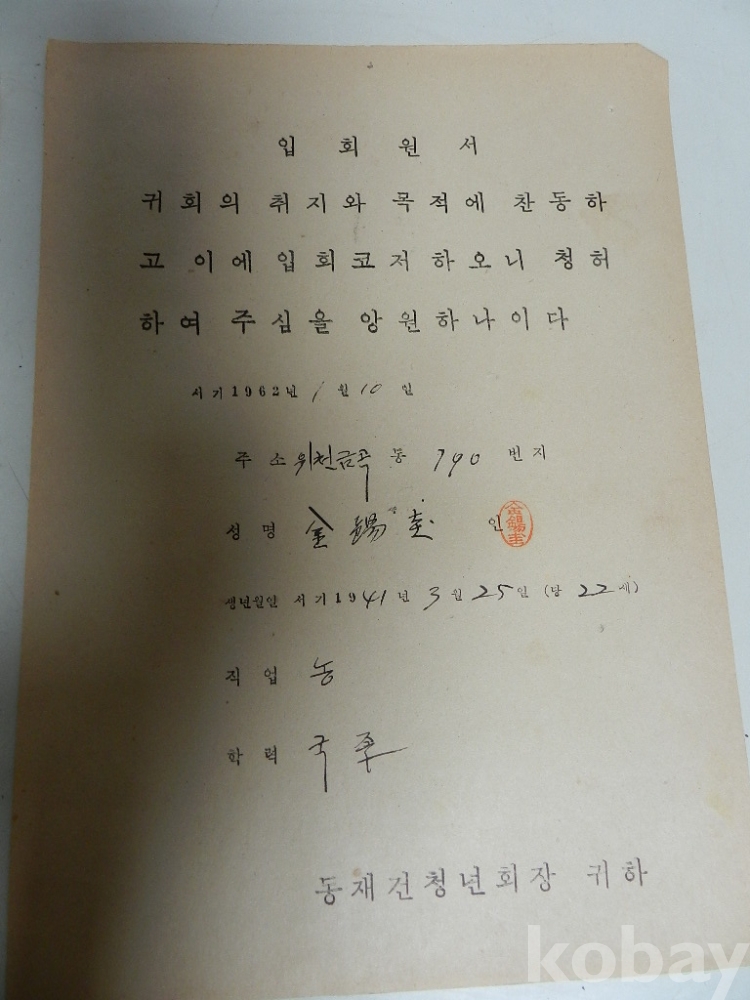 입 회 원 서
귀회의 취지와 목적에 찬동하
고 이에 입회코저 하오니 청허
하여 주심을 앙원하나이다
서기1962년 1 월 10 일
주소 위천금곡 동 790 번지
성명 金錫圭 인
생년월일 서기1941년 3월 25일 (당 22세)
직업 농
학력 국졸
동재건청년회장 귀하
kobay